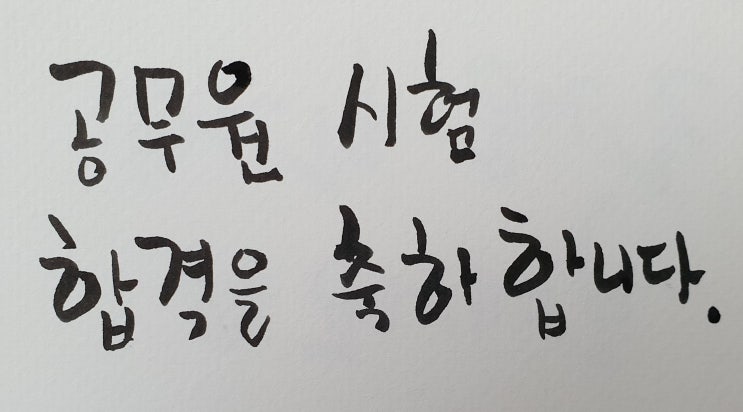 공무원 시험
합격을 축하합니다.